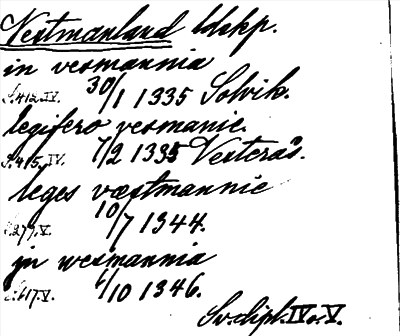 Vestmanland ldskp.
in vesmannia
S.412.IV. 30/1 1335 Solvik.
legifero vesmanie.
S.415.IV. 7/2 1335 Vesterås.
leges væstmannie
S.277.V. 10/7 1344.
in wesmannia
S.417.V. 6/10 1346.
Sv.dipl.IV o. V.